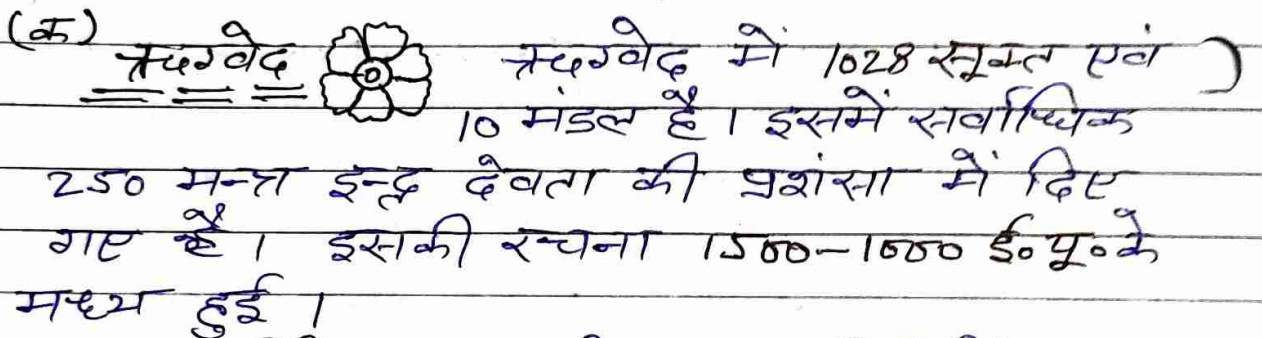 (क) ऋग्वेद ऋग्वेद में 1028 सूक्त एवं
10 मंडल है । इसमें सर्वाधिक
250 मन्त्र इन्द्र देवता की प्रशंसा में दिए
गए है । इसकी रचना 1500-1000 ई० पू० के
मध्य हुई ।